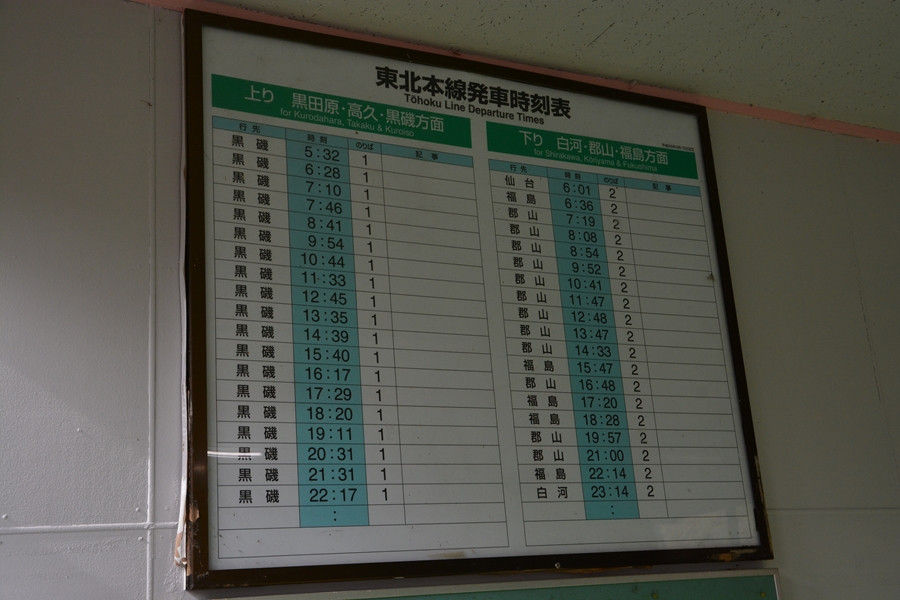 東北本線発車時刻表
Tōhoku Line Departure Times
上り 黒田原・高久・黒磯方面
for Kurodahara, Takaku & Kuroiso
行先 時刻 のりば 記事
黒磯 5:32 1
黒磯 6:28 1
黒磯 7:10 1
黒磯 7:46 1
黒磯 8:41 1
黒磯 9:54 1
黒磯 10:44 1
黒磯 11:33 1
黒磯 12:45 1
黒磯 13:35 1
黒磯 14:39 1
黒磯 15:40 1
黒磯 16:17 1
黒磯 17:29 1
黒磯 18:20 1
黒磯 19:11 1
黒磯 20:31 1
黒磯 21:31 1
黒磯 22:17 1
:
下り 白河・郡山・福島方面
for Shirakawa, Kōriyama & Fukushima
行先 時刻 のりば 記事
仙台 6:01 2
福島 6:36 2
郡山 7:19 2
郡山 8:08 2
郡山 8:54 2
郡山 9:52 2
郡山 10:41 2
郡山 11:47 2
郡山 12:48 2
郡山 13:47 2
郡山 14:33 2
福島 15:47 2
郡山 16:48 2
福島 17:20 2
福島 18:28 2
郡山 19:57 2
郡山 21:00 2
福島 22:14 2
白河 23:14 2
: